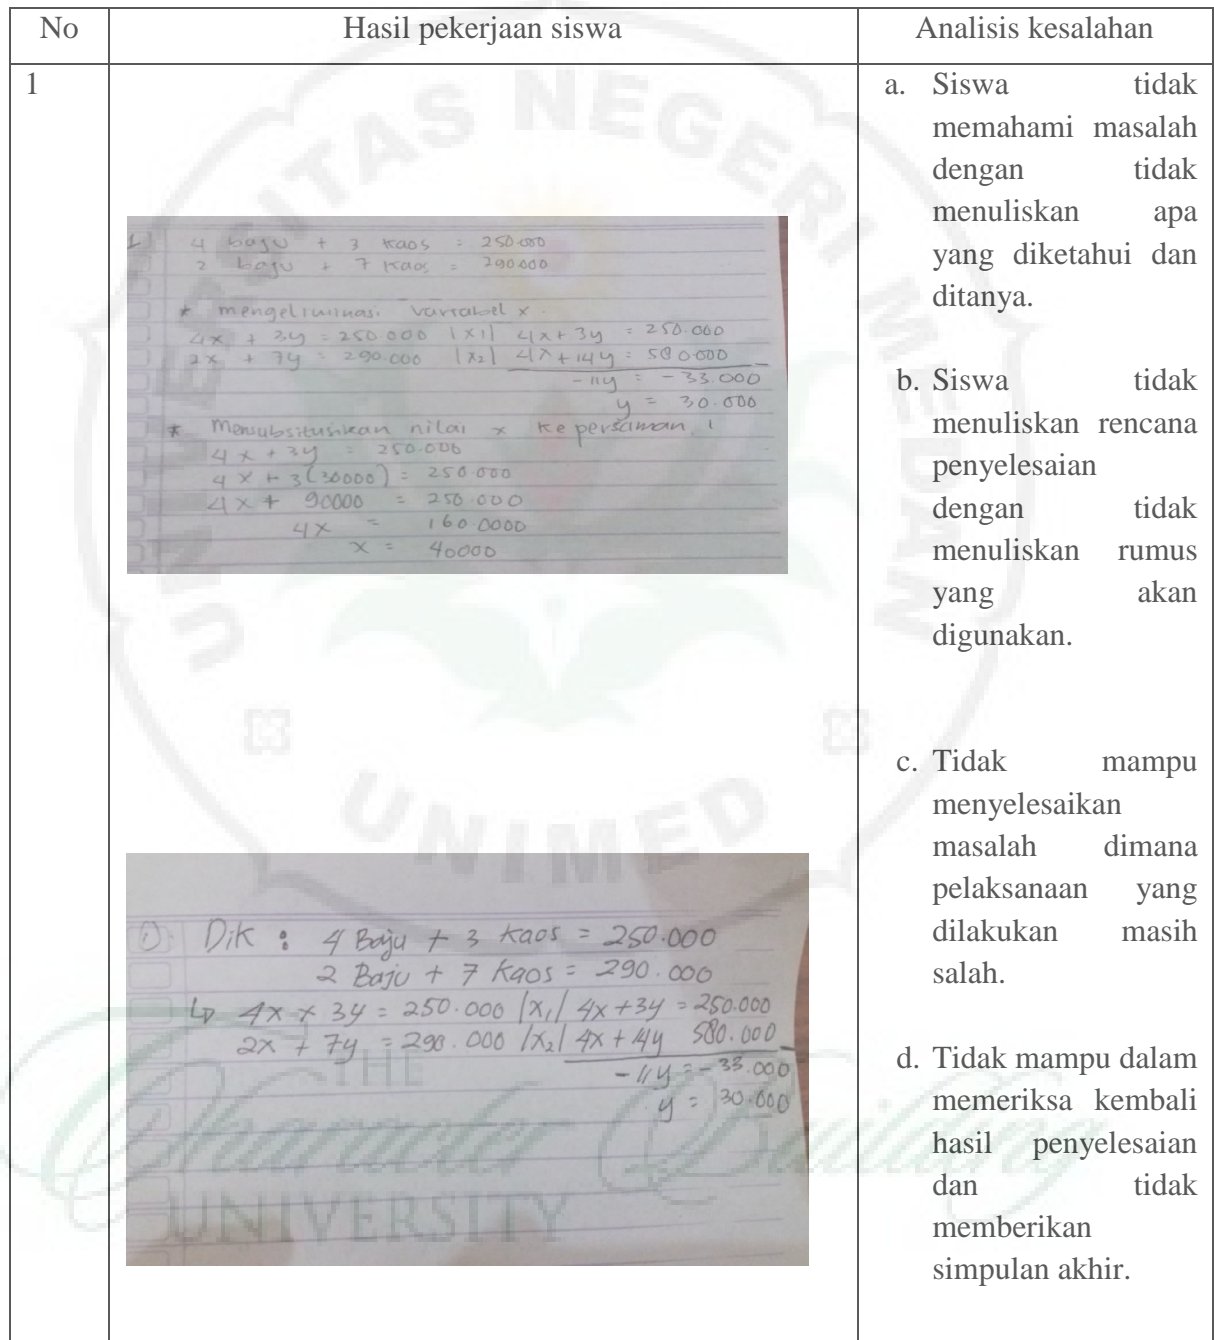 No
Hasil pekerjaan siswa
Analisis kesalahan
1
1 4 baju + 3 kaos = 250.000
2 baju + 7 kaos = 290.000
* mengeliminasi variabel x
4x + 3y = 250.000 |x1| 4x + 3y = 250.000
2x + 7y = 290.000 |x2| 4x + 14y = 580.000
-11y = -33.000
y = 30.000
* Mensubsitusikan nilai x ke persaman 1
4x + 3y = 250.000
4x + 3(30000) = 250.000
4x + 90000 = 250.000
4x = 160.0000
x = 40000
① Dik : 4 Baju + 3 kaos = 250.000
2 Baju + 7 kaos = 290.000
↳ 4x + 3y = 250.000 |x1| 4x + 3y = 250.000
2x + 7y = 290.000 |x2| 4x + 14y 580.000
-11y = -33.000
y = 30.000
a. Siswa tidak
memahami masalah
dengan tidak
menuliskan apa
yang diketahui dan
ditanya.
b. Siswa tidak
menuliskan rencana
penyelesaian
dengan tidak
menuliskan rumus
yang akan
digunakan.
c. Tidak mampu
menyelesaikan
masalah dimana
pelaksanaan yang
dilakukan masih
salah.
d. Tidak mampu dalam
memeriksa kembali
hasil penyelesaian
dan tidak
memberikan
simpulan akhir.
UNIVERSITAS NEGERI MEDAN
UNIMED
THE
Character Building
UNIVERSITY